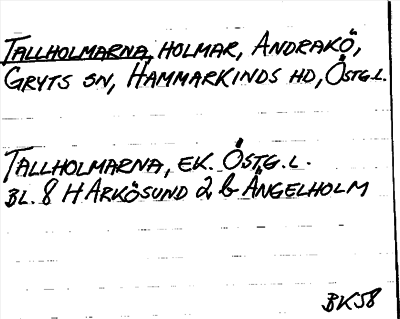 TALLHOLMARNA, HOLMAR, ANDRAKÖ,
GRYTS SN, HAMMARKINDS HD, ÖSTG.L.
TALLHOLMARNA, EK. ÖSTG.L.
BL. 8 H ARKÖSUND 2 b ÄNGELHOLM
BK58